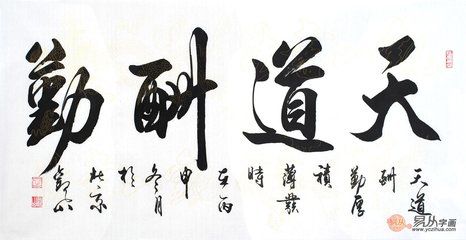 天道酬勤
天道酬勤厚積薄發時在丙申冬月於北京
易从字画
www.yczihua.com